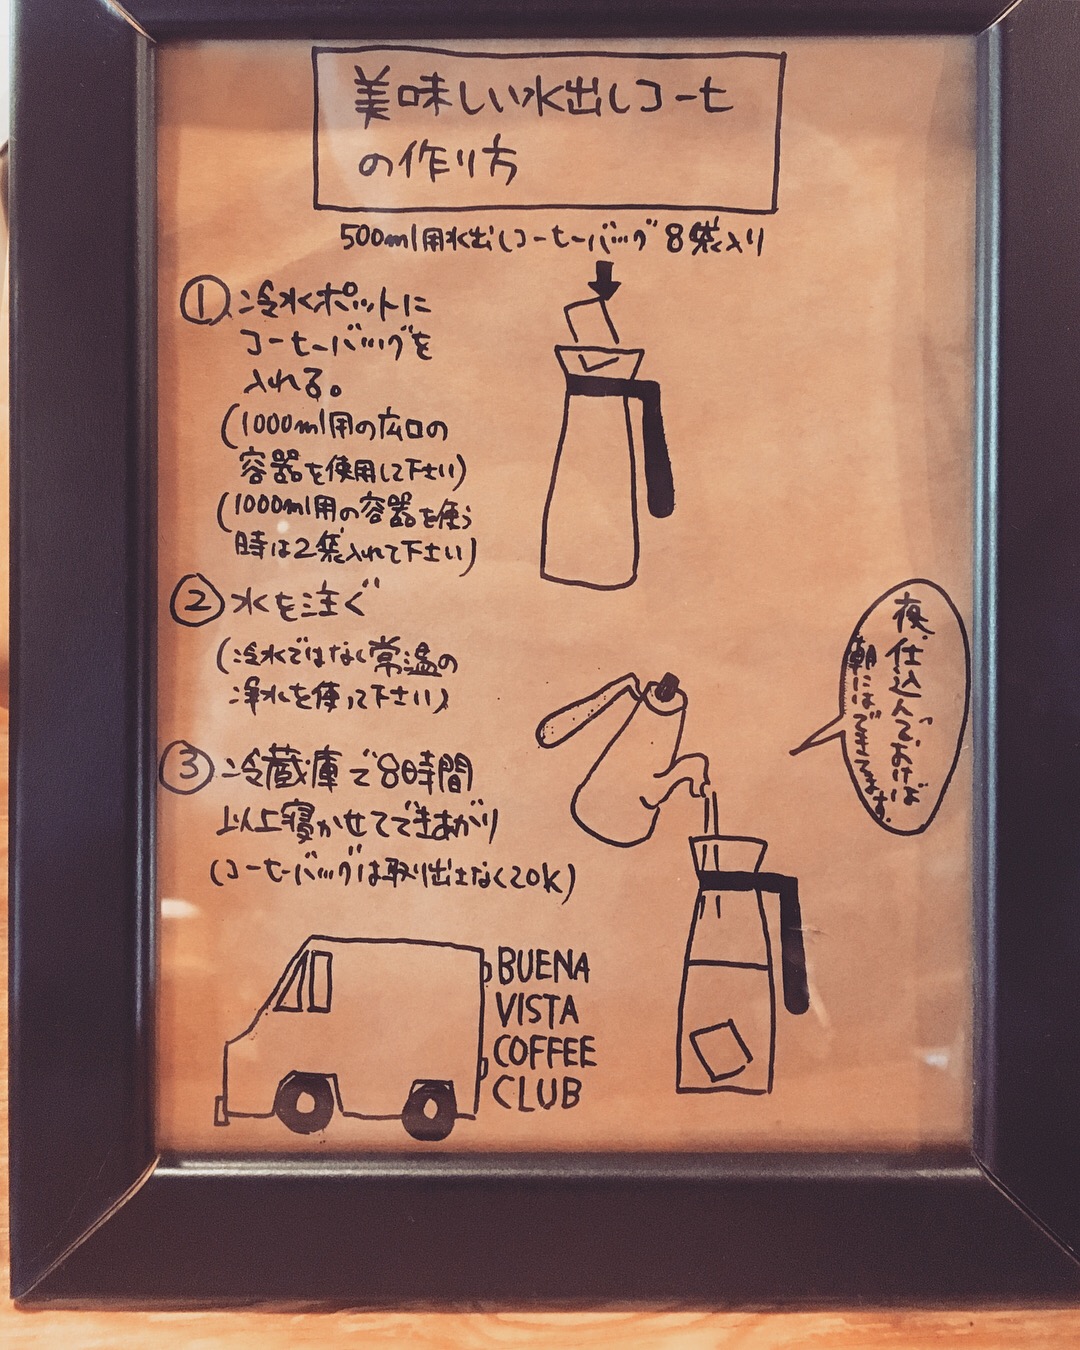 美味しい水出しコーヒ
の作り方
500ml用水出しコーヒーバッグ8袋入り
① 冷水ポットに
コーヒーバッグを
入れる。
(1000ml用の広口の
容器を使用して下さい)
(1000ml用の容器を使う
時は2袋入れて下さい)
② 水を注ぐ
(冷水ではなく常温の
浄水を使って下さい)
③ 冷蔵庫で8時間
以上寝かせてできあがり
(コーヒーバッグは取り出さなくてOK)
夜、仕込んでおけば
朝にはできてます。
BUENA
VISTA
COFFEE
CLUB